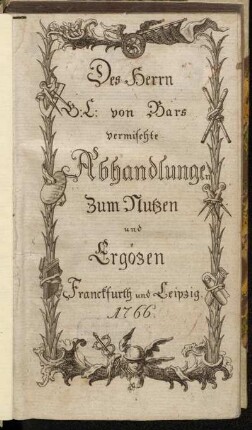 Des Herrn
G: L: von Bars
vermischte
Abhandlungen
Zum Nutzen
und
Ergözen
Franckfurth und Leipzig.
1766.